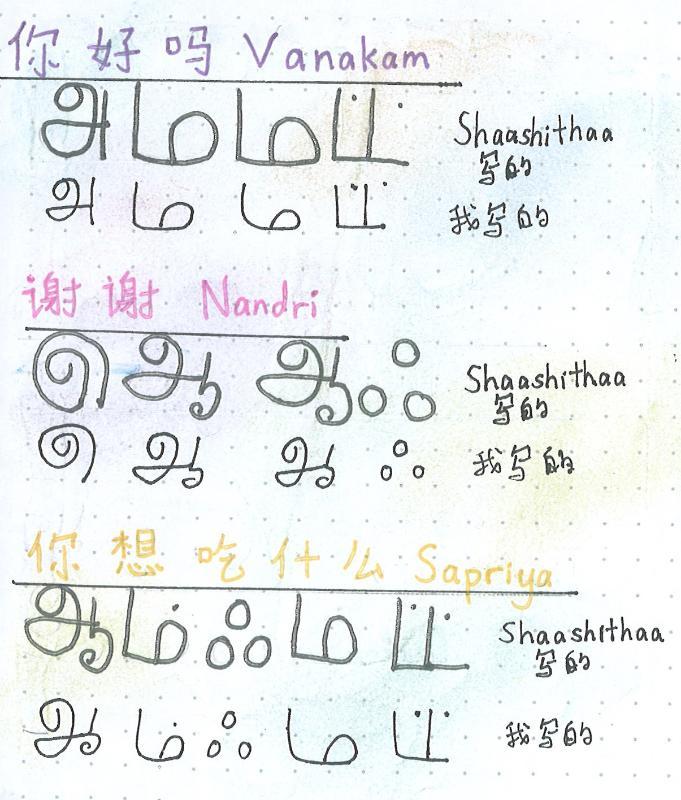 你好吗 Vanakam
அ ம ம Shaashithaa
写的
அ ம ம 我写的
谢谢 Nandri
ஆ ஆ ஃ Shaashithaa
写的
ஆ ஆ ஃ 我写的
你想吃什么 Sapriya
ஆ ம் ஃ ம Shaashithaa
写的
ஆ ம் ஃ ம 我写的